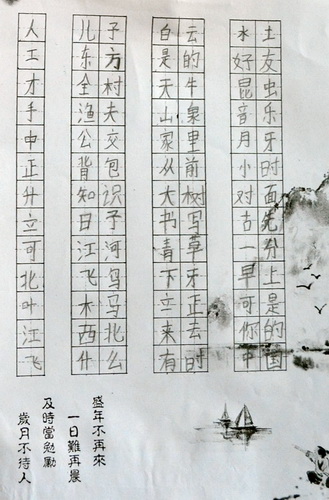 人 儿子 白云 水土
工 东方 是的 好友
才 全村 天牛 昆虫
手 渔夫 山泉 音乐
中 公交 家里 月牙
正 背包 从前 小时
升 知识 大树 对面
立 日子 书写 古先
可 江河 青草 一分
北 飞鸟 下牙 早上
叶 木马 立正 可是
江 西北 来去 你的
飞 什么 有时 中国
盛年不再來
一日難再晨
及時當勉勵
歲月不待人